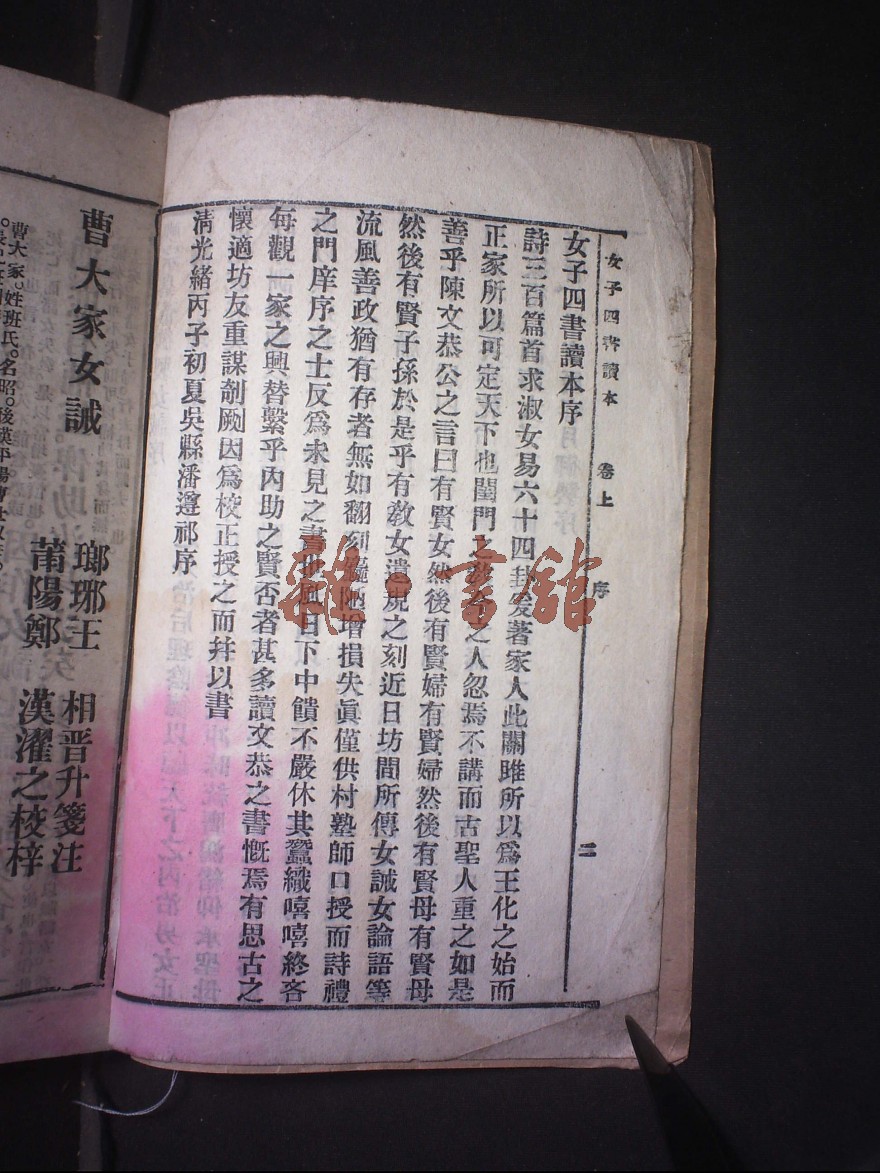 女子四書讀本　卷上　序　二
女子四書讀本序
詩三百篇首求淑女易六十四卦爻著家人此關雎所以為王化之始而
正家所以可定天下也閨門之　之人忽焉不講而古聖人重之如是
善乎陳文恭公之言曰有賢女然後有賢婦有賢婦然後有賢母有賢母
然後有賢子孫於是乎有教女遺規之刻近日坊間所傳女誡女論語等
流風善政猶有存者無如翻刻　陋增損失眞僅供村塾師口授而詩禮
之門庠序之士反為未見之書　風日下中饋不嚴休其蠶織嘻嘻終吝
每觀一家之興替繫乎內助之賢否者甚多讀文恭之書慨焉有思古之
懷適坊友重謀剞劂因為校正授之而幷以書
清光緒丙子初夏吳縣潘遵祁序
曹大家女誡
瑯琊王　相晋升箋注
莆陽鄭　漢濯之校梓
曹大家。姓班氏。名昭。後漢平陽曹世叔
雜·書館